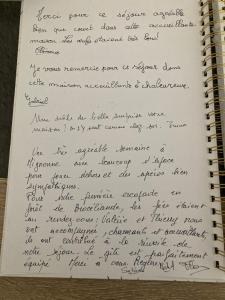 Merci pour ce séjour agréable
bien que court dans cette accueillante
maison Les œufs étaient très bons!
Je vous remercie pour ce séjour dans
cette maison accueillante & chaleureuse.
Gabriel
Une visite de belle surprise votre
maison! on s'y sent comme chez soi.
Une très agréable semaine à
avec beaucoup d'espace
pour jouer dehors et des voisins bien
sympathiques.
Pour notre première escapade en
forêt de Brocéliande, les fées étaient
au rendez-vous! Valérie et Thierry nous
ont accompagnés, charmants et accueillants,
ils ont contribué à la réussite de
notre séjour. Le gîte est parfaitement
équipé. Merci à vous.